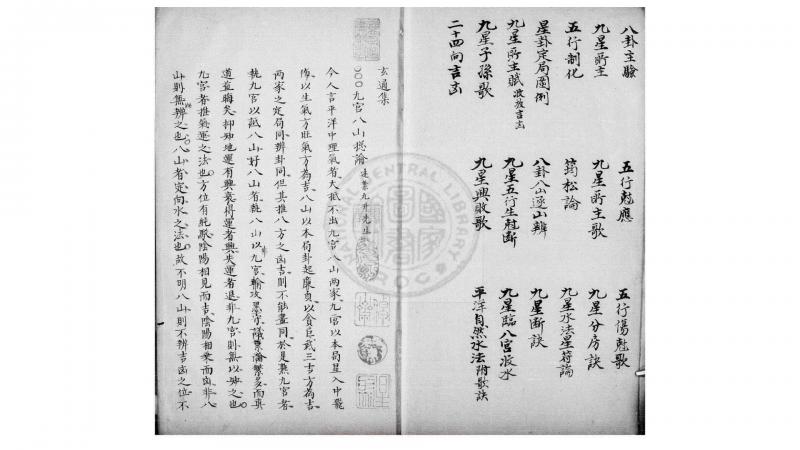 八卦主驗　五行尅應　五行傷尅歌
九星所主　九星所主歌　九星分房訣
五行制化　筠松論　九星水法星符論
星卦定局圖例　八卦八山逐山辨　九星斷訣
九星所主賦收放吉凶　九星五行生尅斷　九星臨八宮收水
九星子孫歌　九星興敗歌　平洋自然水法附歌訣
二十四向吉凶
玄通集
○○○九宮八山總論
今人言平洋中理氣者大抵不出九宮八山兩家九宮以本局星入中飛
佈以生氣方旺氣方為吉八山以本局卦起廉貞以貪巨武三吉方為吉
兩家之定局同辨卦同但其推八方之凶吉則不能盡同於是熟九宮者
執九宮以詆八山好八山者執八山以 九宮輸攻墨守議票論繁多而真
道益晦矣抑知地運有興衰得運者興失運者退非九宮則無以知之也
九宮者推氣運之法也方位有純駁陰陽相見而吉陰陽相乘而凶非八
山則無辨之也八山者定向水之法也故不明八山則不辨吉凶之位不
NATIONAL CENTRAL LIBRARY
R.O.C.
國家圖書館